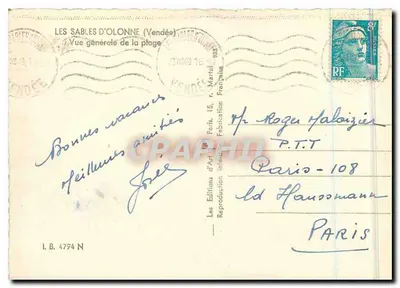 LES SABLES D'OLONNE (Vendée)
Vue générale de la plage
VENDÉE
VENDÉE
RF
Bonnes vacances
Meilleures amitiés
José
Mr Roger Maloizier
P.T.T
Paris-108
Bd Haussmann
PARIS
CPARAMA
Les Editions d'Art
Paris, 15, r. Martel
Reproduction
Fabrication Française
I. B. 4794 N